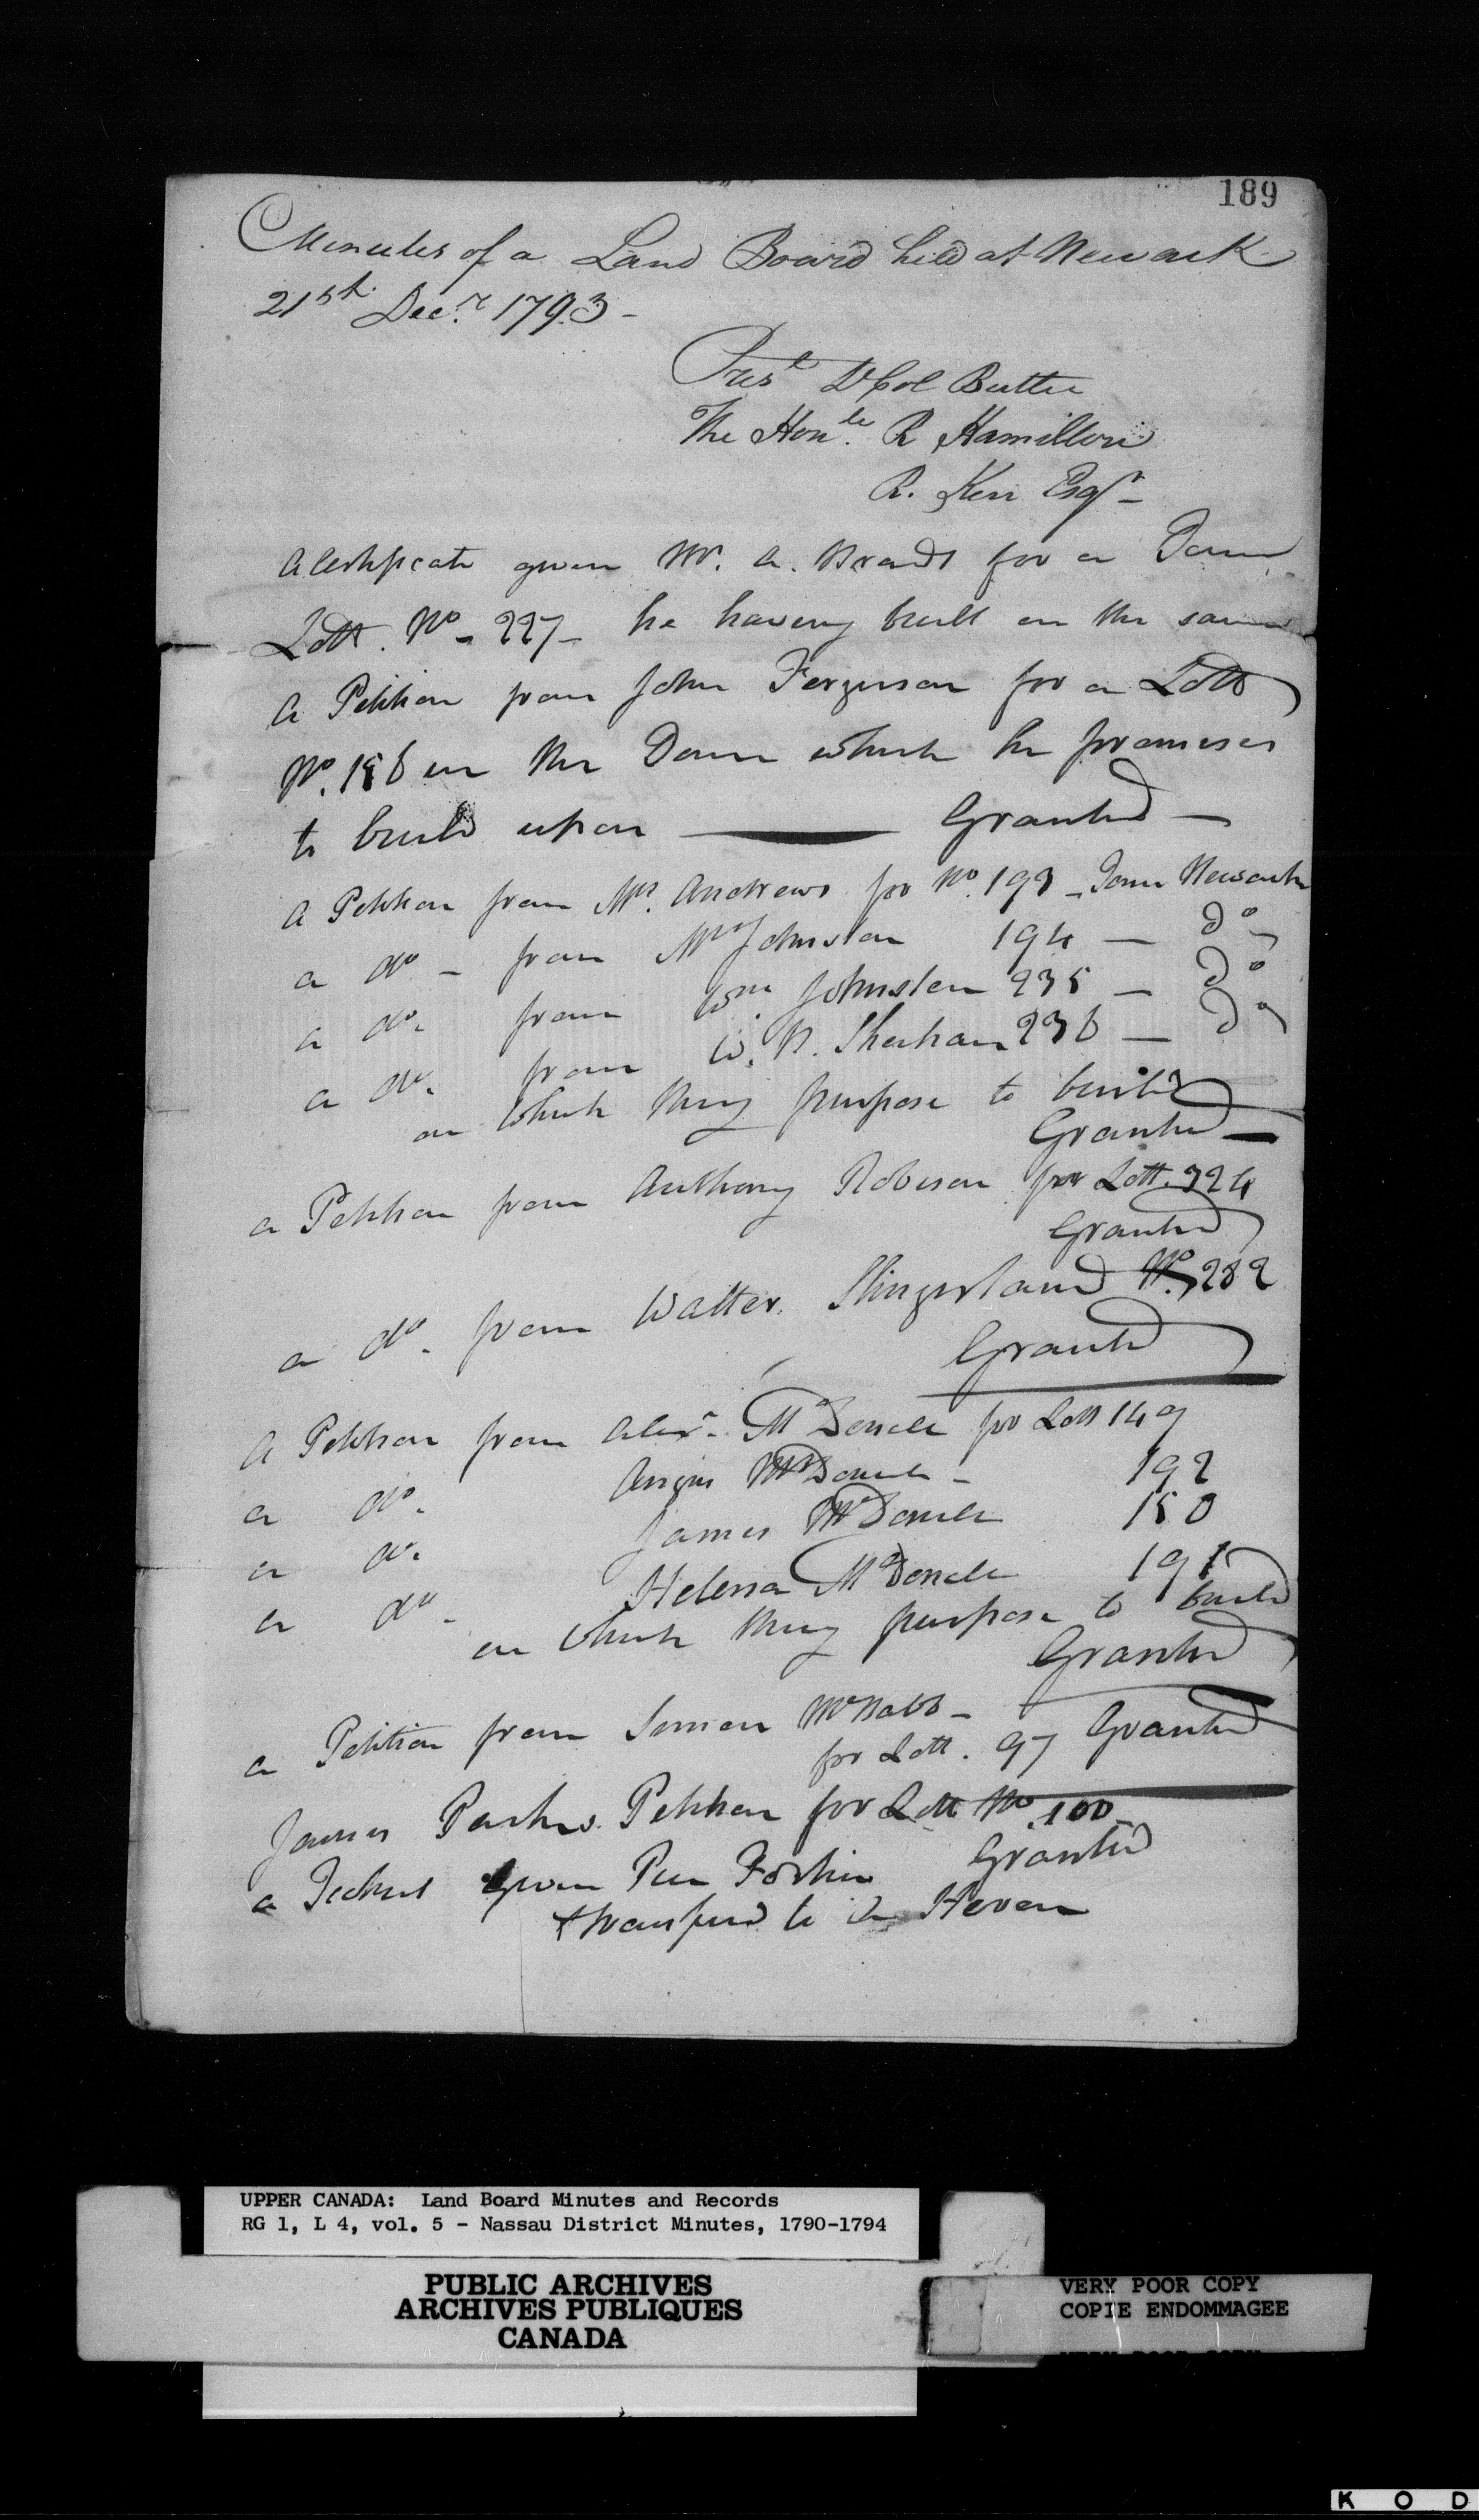 189
Minutes of a Land Board held at Newark
21st Decr. 1793 -
Prest Lt Col Butler
The Honle. R Hamilton
R. Kerr Esqr -
A Certificate given Mr. A. Brandt for a Town
Lott. No - 227 - he having built on the same
A Petition from John Ferguson for a Lott
No. 186 in the Town which he promises
to build upon — Granted —
A Petition from Mr. Andrews for No. 193 - Town Newark
a do - from Mr Johnston 194 — Do
a do. from Wm. Johnston 235 — Do
a do. from W. R. Sheehan 236 — Do
on which they purpose to build
Granted —
a Petition from Anthony Robison for Lott. 324
Granted
a do. from Walter. Slingerland No. 282
Granted
A Petition from Alexr. McDonell for Lott 149
a do. Angus McDonell - 192
a do. James McDonell 150
a do - Helena McDonell 191
on which they purpose to build
Granted
a Petition from Simon McNabb -
for Lott. 97 Granted
James Parks. Petition for Lott No. 100
Granted
a Ticket given
transferd to Heron
UPPER CANADA: Land Board Minutes and Records
RG 1, L 4, vol. 5 - Nassau District Minutes, 1790-1794
PUBLIC ARCHIVES
ARCHIVES PUBLIQUES
CANADA
VERY POOR COPY
COPIE ENDOMMAGEE
K O D